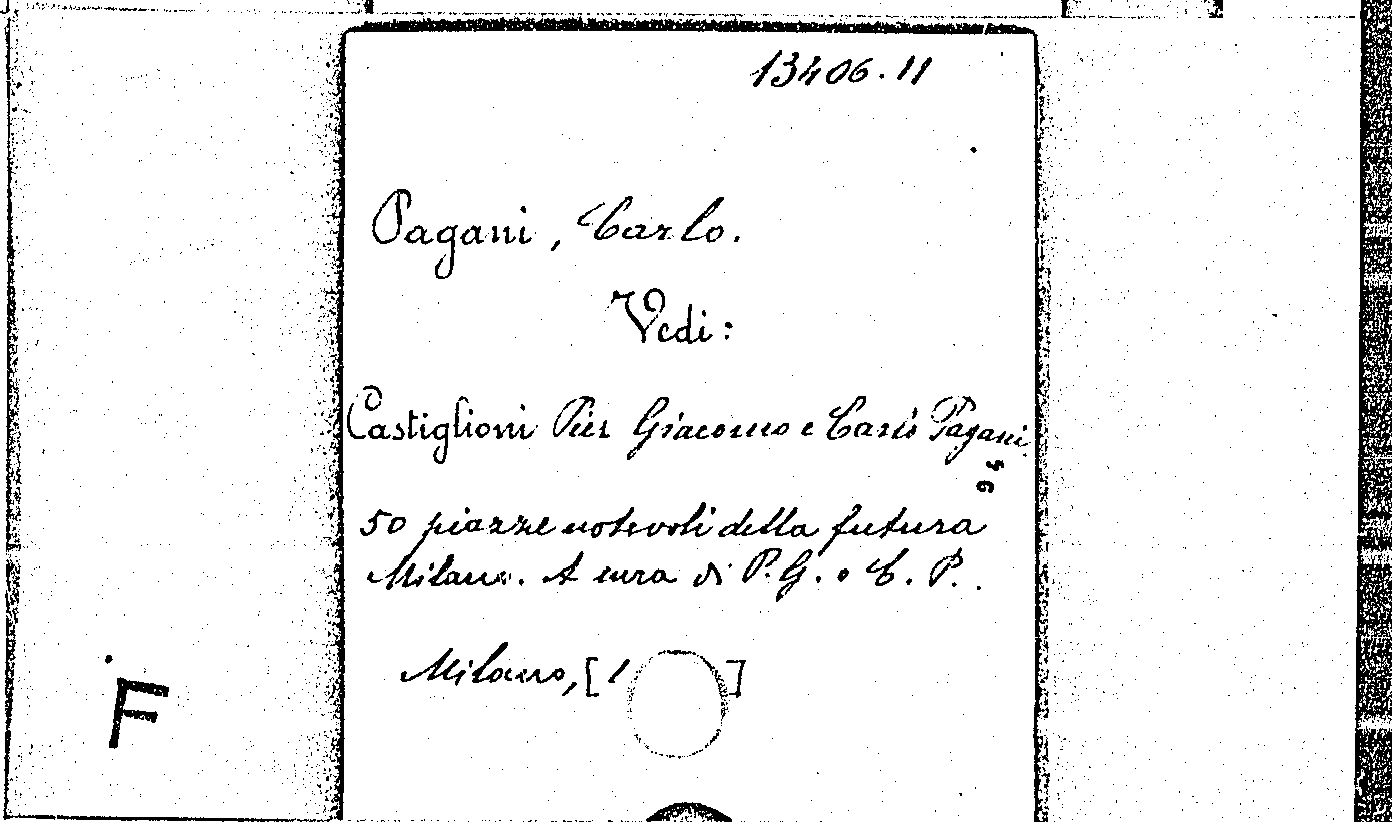 13406.11
Pagani, Carlo.
Vedi:
Castiglioni Pier Giacomo e Carlo Pagani.
50 piazze notevoli della futura
Milano. A cura di P. G. e C. P.
Milano, [1 ]
F